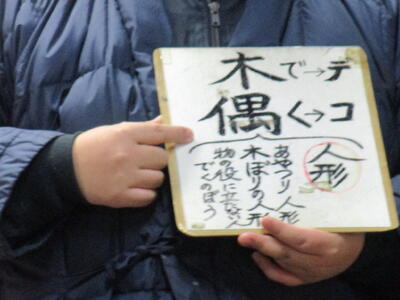 木で→デ
偶く→コ
人形
あやつり人形
木ぼりの人形
物の役に立たない人
でくのぼう